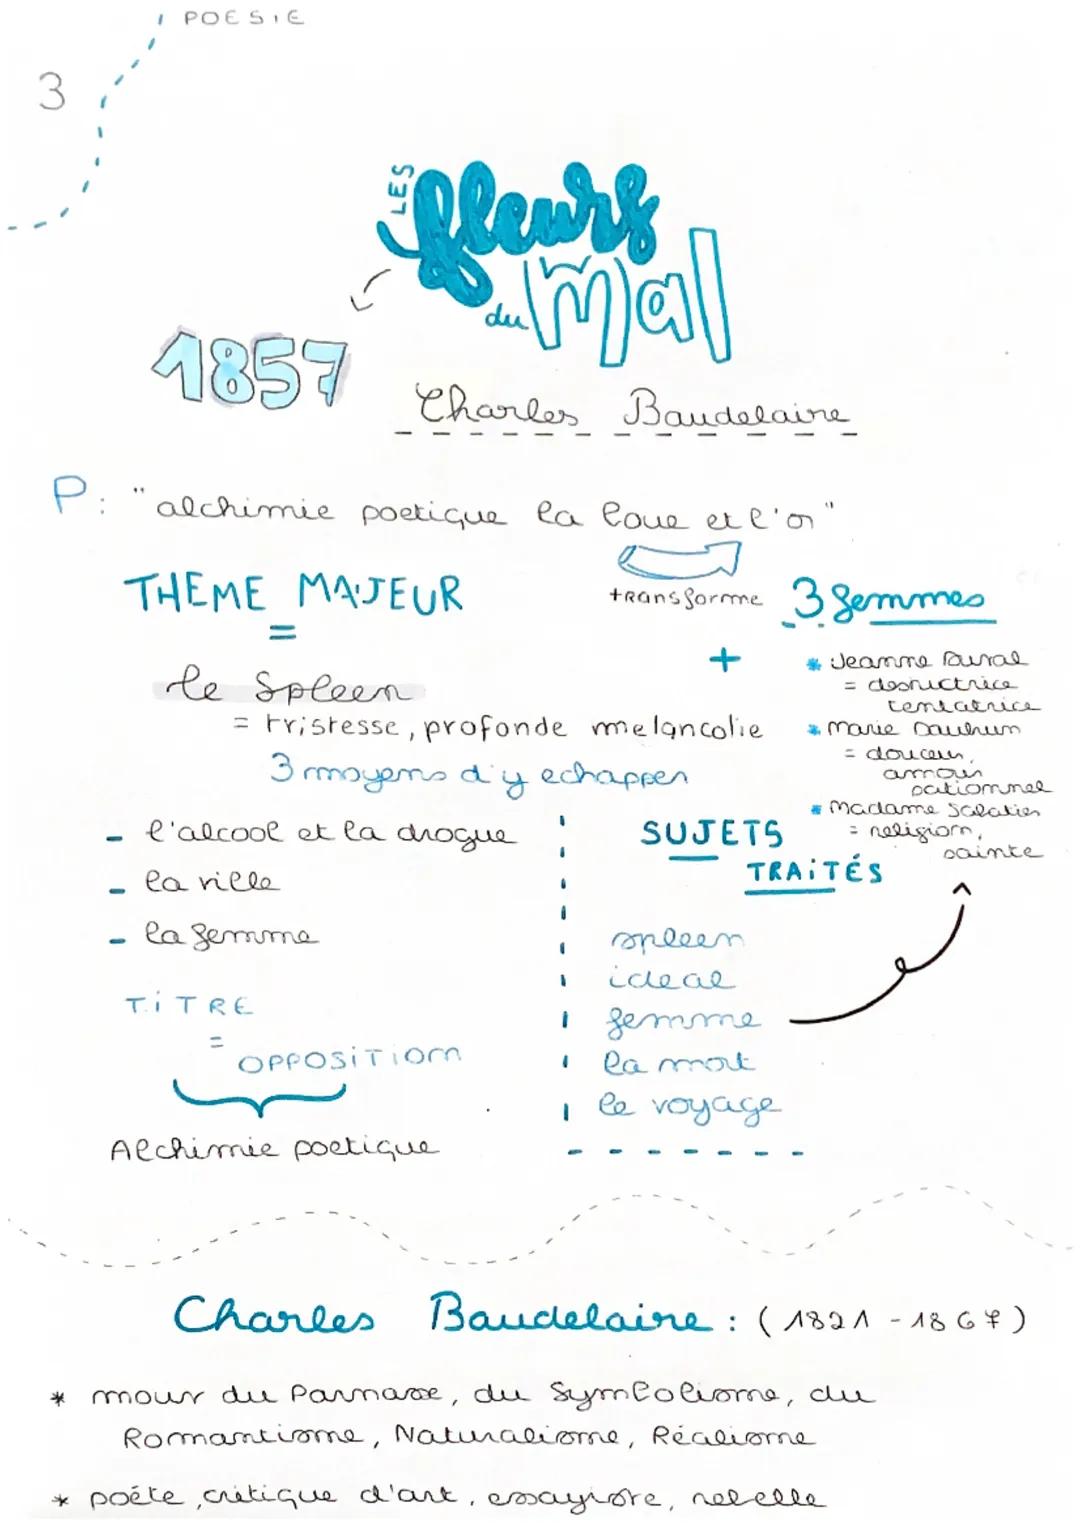 POESIE
3
LES
fleurs
du Mal
1857
Charles Baudelaire
P: "alchimie poetique la boue et l'or"
transforme
THEME MAJEUR
=
le Spleen
= tristesse, profonde melancolie
3 moyens d'y echapper
- l'alcool et la drogue
- la ville
- la femme
+
3 femmes
* Jeanne Duval
= destructrice
tentatrice
* Marie Daubrun
= douceur,
amour
pationnel
* Madame Sabatier
= religion,
sainte
SUJETS
TRAITÉS
spleen
ideal
femme
la mort
le voyage
TITRE
=
OPPOSITION
Alchimie poetique
Charles Baudelaire : (1821 - 1867)
* mour du Parnasse, du Symbolisme, du
Romantisme, Naturalisme, Réalisme
* poéte, critique d'art, essayiste, rebelle